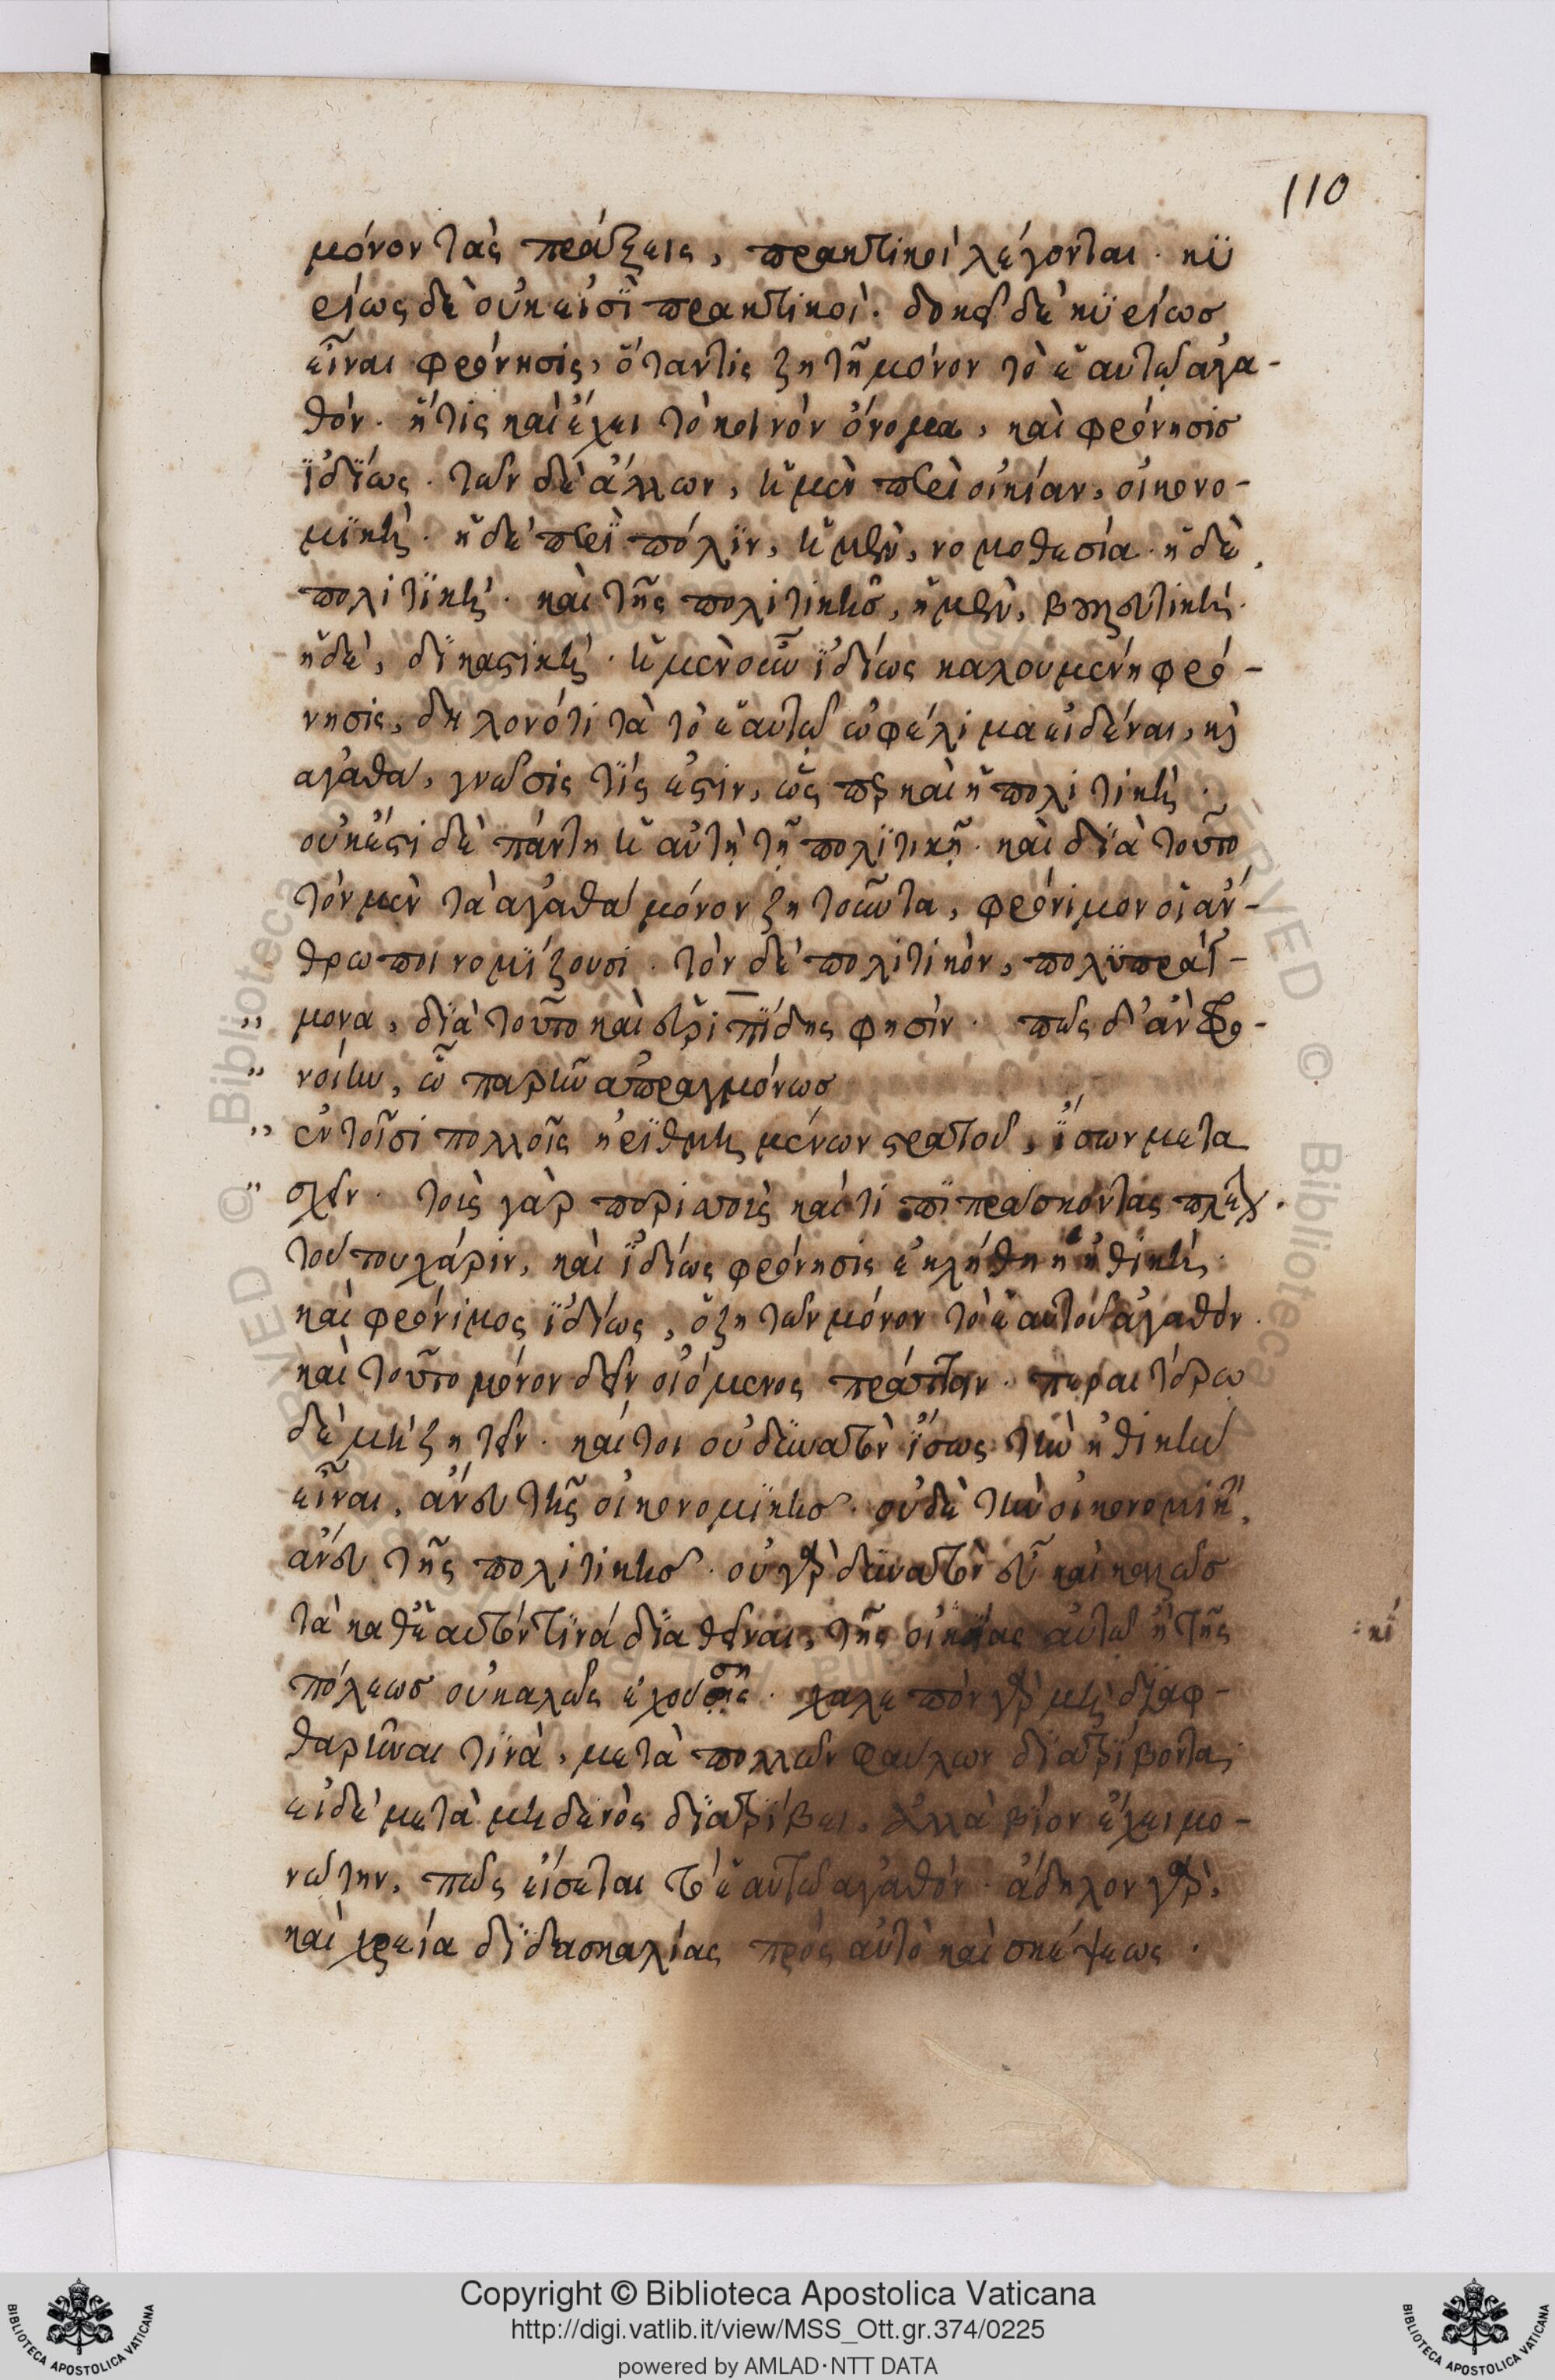 110
μόνον τὰς πράξεις, πρακτικοὶ λέγονται. κϋ
ρίως δὲ οὐκ εἰσῒ πρακτικοὶ. δοκεῖ δὲ κϋρίως
εἶναι φρόνησις, ὅταν τις ζητῆ μόνον τὸ ἑαυτῶ ἀγα-
θόν. ἥτις καὶ ἔχει τὸ κοινὸν ὄνομα, καὶ φρόνησις
ϊδΐως. τῶν δὲ ἄλλων, ἡ μὲν περὶ οἰκίαν, οἰκονο-
μϊκή. ἡ δὲ περῒ πόλϊν, ἡ μὲν, νομοθεσία. ἡ δὲ
πολιτϊκή. καὶ τῆς πολιτικῆς, ἡ μὲν, βουλευτική.
ἡ δὲ, δϊκαστική. ἡ μὲν οὖν ϊδίως καλουμένη φρό-
νησις, δηλονότι τὰ τὸ ἑαυτῶ ὠφέλιμα εἰδέναι, κὶ
ἀγαθὰ, γνῶσίς τΐς ἐστιν, ὥσπερ καὶ ἡ πολιτική.
οὐκ ἔστι δὲ πάντη ἡ αὐτὴ τῆ πολϊτικῆ. καὶ δϊὰ τοῦτο
τὸν μὲν τὰ ἀγαθὰ μόνον ζητοῦντα, φρόνιμον οἱ ἄν-
θρωποι νομΐζουσι. τὸν δὲ πολιτικὸν, πολϋπράγ-
μονα, δϊὰ τοῦτο καὶ εὐριπΐδης φησίν. πῶς δ' ἂν φρο-
νοίην, ὦ παρῆν ἀπραγμόνως
ἐν τοῖσι πολλοῖς ἠρϊθμημένων στρατοῦ, ΐσων μετα
σχεῖν. τοὶς γὰρ περισσοὶς καί τι πϊπράσκοντας πλεῖ.
τούτου χάριν, καὶ ϊδίως φρόνησις ἐκλήθη ἡ ἠθική.
καὶ φρόνιμος ϊδίως, ὁ ζητῶν μόνον τὸ ἑαυτοῦ ἀγαθόν.
καὶ τοῦτο μόνον δεῖν οἰόμενος πράττειν. περαιτόρω
δὲ μὴ ζητεῖν. καίτοι οὐ δϋνατὸν ΐσως τὴν ἠθικὴν
εἶναι, ἄνευ τῆς οἰκονομϊκῆς. οὐδὲ τὴν οἰκονομικὴ,
ἄνευ τῆς πολιτικῆς. οὐ γὰρ δϋνατὸν εὖ καὶ καλῶς
τὰ καθ' ἑαυτόν τϊνά δϊαθεῖναι, τῆς οἰκΐας αὐτῶ ἢ τῆς
: κί
πόλεως οὐ καλῶς ἐχούσης. χαλεπὸν γὰρ μὴ δϊαφ-
θαρῆναι τϊνὰ, μετὰ πολλῶν φαύλων δϊατρΐβοντα,
εἰ δὲ μετὰ μηδενὸς δϊατρίβει, ἀλλὰ βίον ἔχει μο-
νώτην, πῶς εἴσεται τὸ ἑαυτῶ ἀγαθόν. ἄδηλον γὰρ,
καὶ χρεία δϊδασκαλίας πρὸς αὐτὸ καὶ σκέψεως.
Copyright © Biblioteca Apostolica Vaticana
http://digi.vatlib.it/view/MSS_Ott.gr.374/0225
powered by AMLAD·NTT DATA
BIBLIOTECA APOSTOLICA VATICANA
BIBLIOTECA APOSTOLICA VATICANA